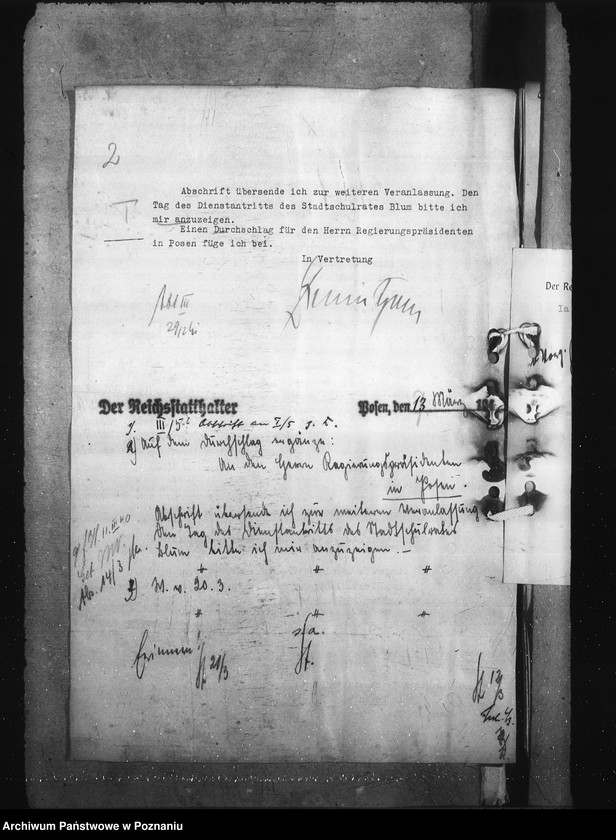 2
Abschrift übersende ich zur weiteren Veranlassung. Den
Tag des Dienstantritts des Stadtschulrates Blum bitte ich
mir anzuzeigen.
Einen Durchschlag für den Herrn Regierungspräsidenten
in Posen füge ich bei.
In Vertretung
Abt III
Der Re
In
Der Reichsstatthalter
Posen, den 13 März 19
auf dem Durchschlag ergänze:
An den Herrn Regierungspräsidenten
in Posen.
Abschrift übersende ich zur weiteren Veranlassung
Den Tag des Dienstantritts des Stadtschulrates
Blum bitte ich mir anzuzeigen. —
2) W. v. 20. 3.
s. a.
21/3
12/3
Archiwum Państwowe w Poznaniu